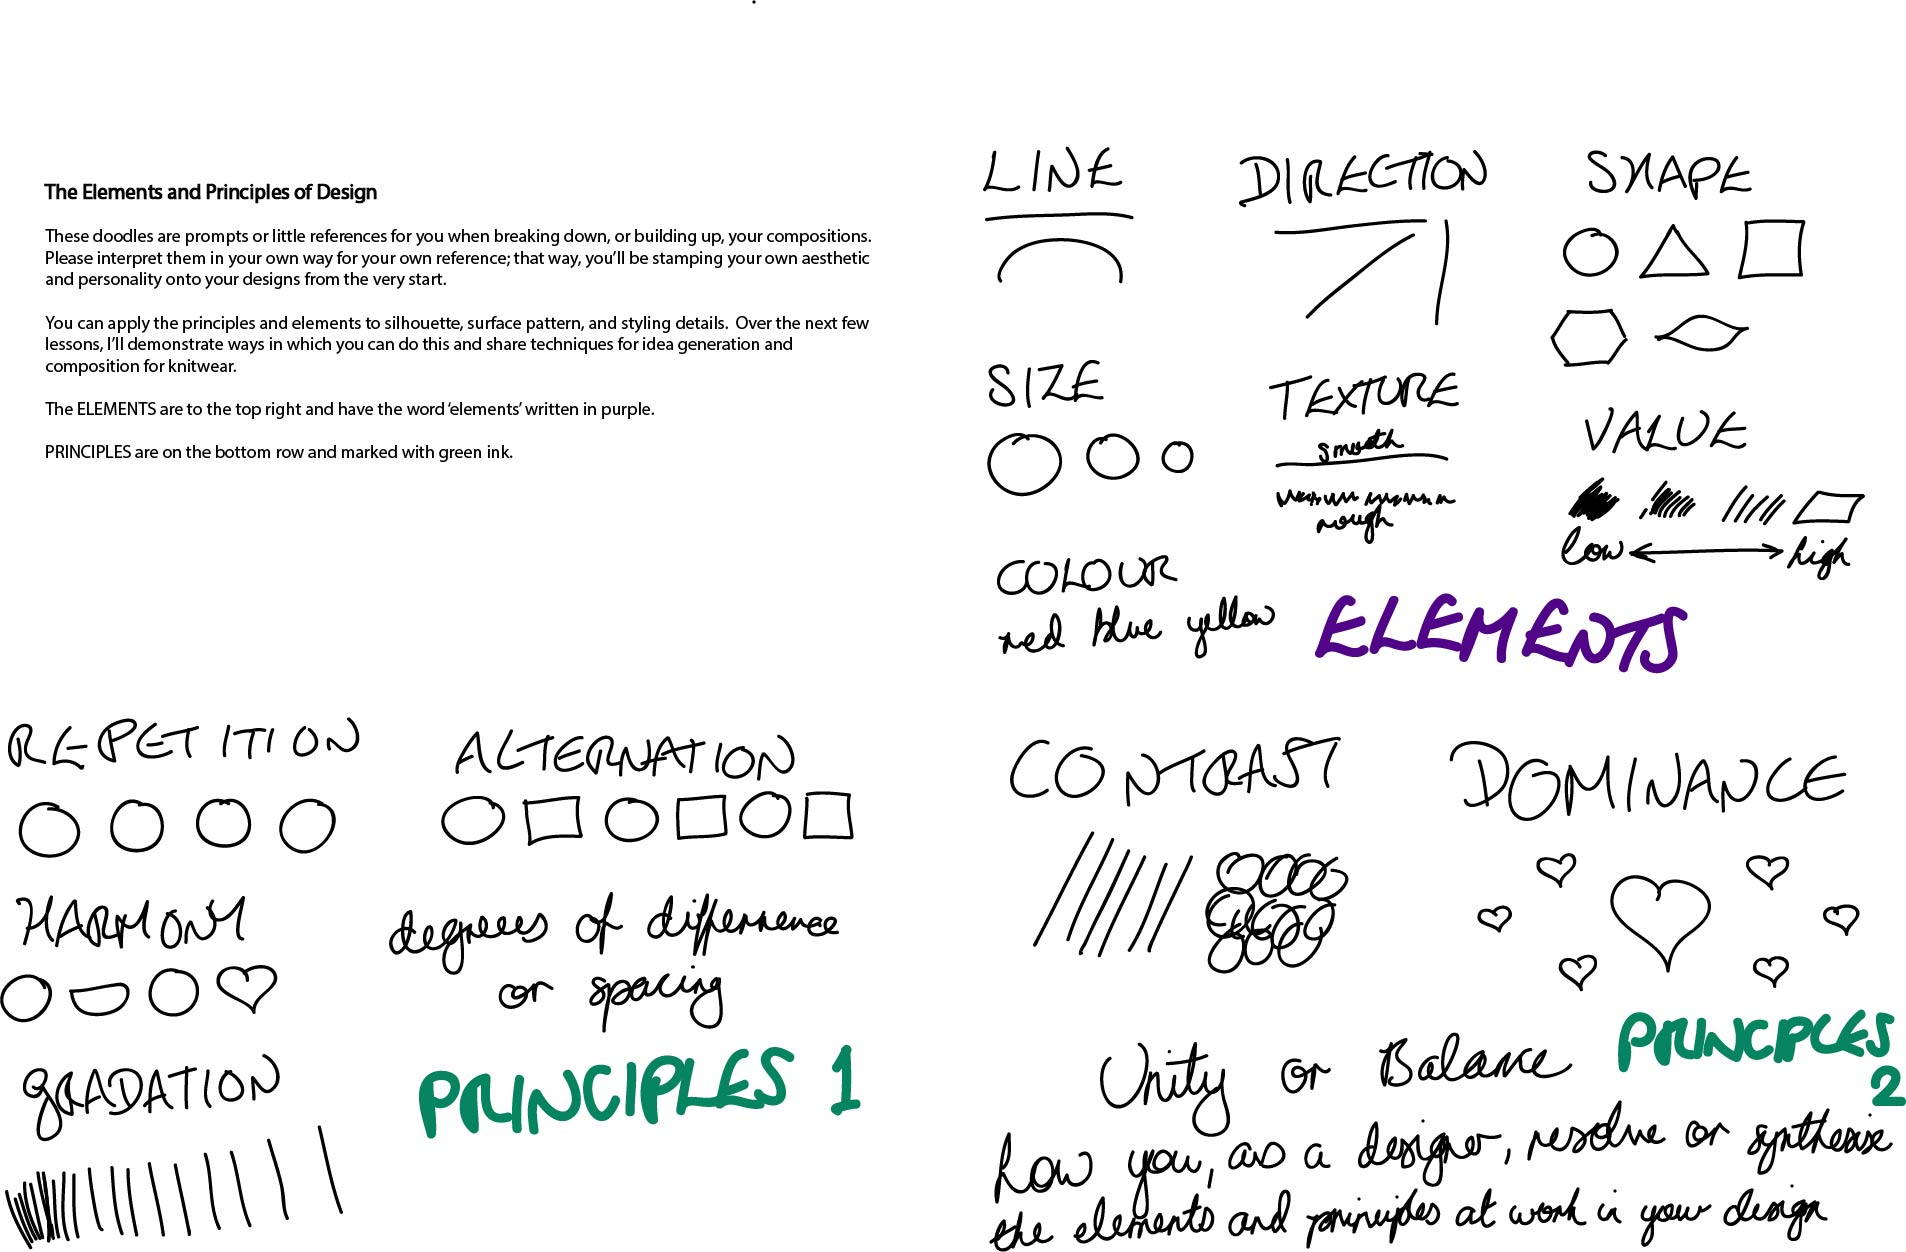 The Elements and Principles of Design
These doodles are prompts or little references for you when breaking down, or building up, your compositions.
Please interpret them in your own way for your own reference; that way, you'll be stamping your own aesthetic
and personality onto your designs from the very start.
You can apply the principles and elements to silhouette, surface pattern, and styling details.  Over the next few
lessons, I'll demonstrate ways in which you can do this and share techniques for idea generation and
composition for knitwear.
The ELEMENTS are to the top right and have the word 'elements' written in purple.
PRINCIPLES are on the bottom row and marked with green ink.
LINE
DIRECTION
SHAPE
SIZE
TEXTURE
smooth
rough
VALUE
low
high
COLOUR
red blue yellow
ELEMENTS
REPETITION
ALTERNATION
HARMONY
degrees of difference
or spacing
GRADATION
PRINCIPLES 1
CONTRAST
DOMINANCE
PRINCIPLES
2
Unity or Balance
how you, as a designer, resolve or synthesise
the elements and principles at work in your design